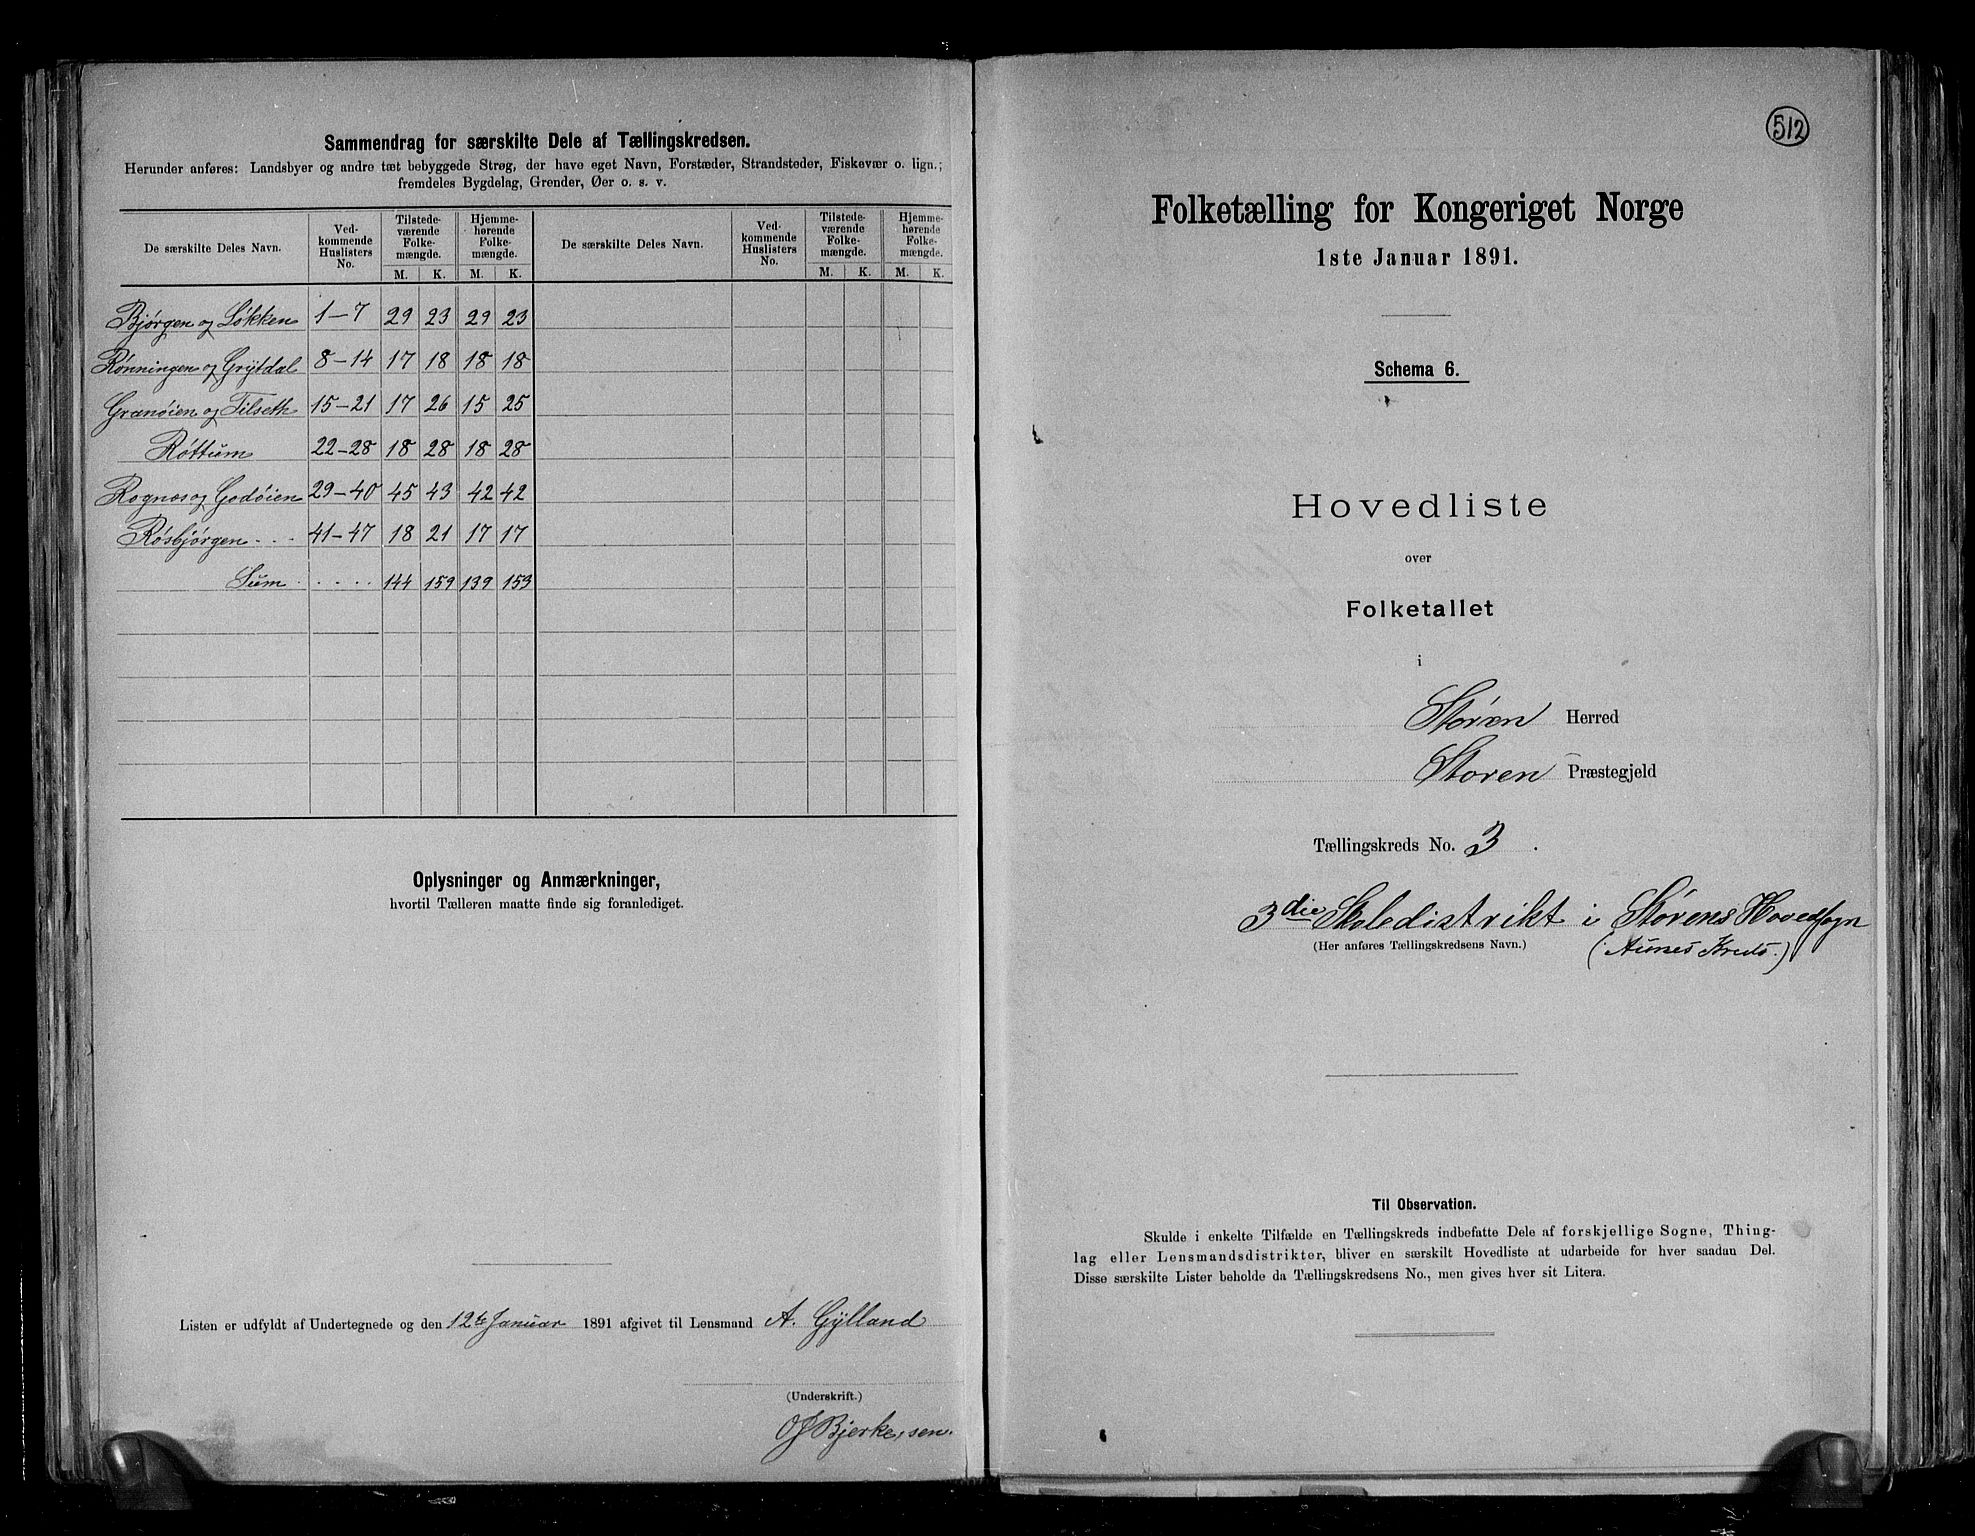 Sammendrag for særskilte Dele af Tællingskredsen.
Herunder anføres: Landsbyer og andre tæt bebyggede Strøg, der have eget Navn, Forstæder, Strandsteder, Fiskevær o. lign.;
fremdeles Bygdelag, Grender, Øer o. s. v.
De særskilte Deles Navn. Ved-kommende Huslisters No. Tilstede-værende Folke-mængde. Hjemme-hørende Folke-mængde. De særskilte Deles Navn. Ved-kommende Huslisters No. Tilstede-værende Folke-mængde. Hjemme-hørende Folke-mængde.
M. K. M. K. M. K. M. K.
Bjørgen og Løkken 1–7 29 23 29 23
Rønningen og Grytdal 8–14 17 18 18 18
Granøien og Tilseth 15–21 17 26 15 25
Røttum 22–28 18 28 18 28
Rognæs og Godøien 29–40 45 43 42 42
Røsbjørgen 41–47 18 21 17 17
Sum 144 159 139 153
Oplysninger og Anmærkninger,
hvortil Tælleren maatte finde sig foranlediget.
Listen er udfyldt af Undertegnede og den 12te Januar 1891 afgivet til Lensmand A. Gylland
(Underskrift.)
512
Folketælling for Kongeriget Norge
1ste Januar 1891.
Schema 6.
Hovedliste
over
Folketallet
i
Støren Herred
Støren Præstegjeld
Tællingskreds No. 3.
3die Skoledistrikt i Størens Hovedsogn
(Her anføres Tællingskredsens Navn.) (Aunes Kreds.)
Til Observation.
Skulde i enkelte Tilfælde en Tællingskreds indbefatte Dele af forskjellige Sogne, Thing-
lag eller Lensmandsdistrikter, bliver en særskilt Hovedliste at udarbeide for hver saadan Del.
Disse særskilte Lister beholde da Tællingskredsens No., men gives hver sit Litera.